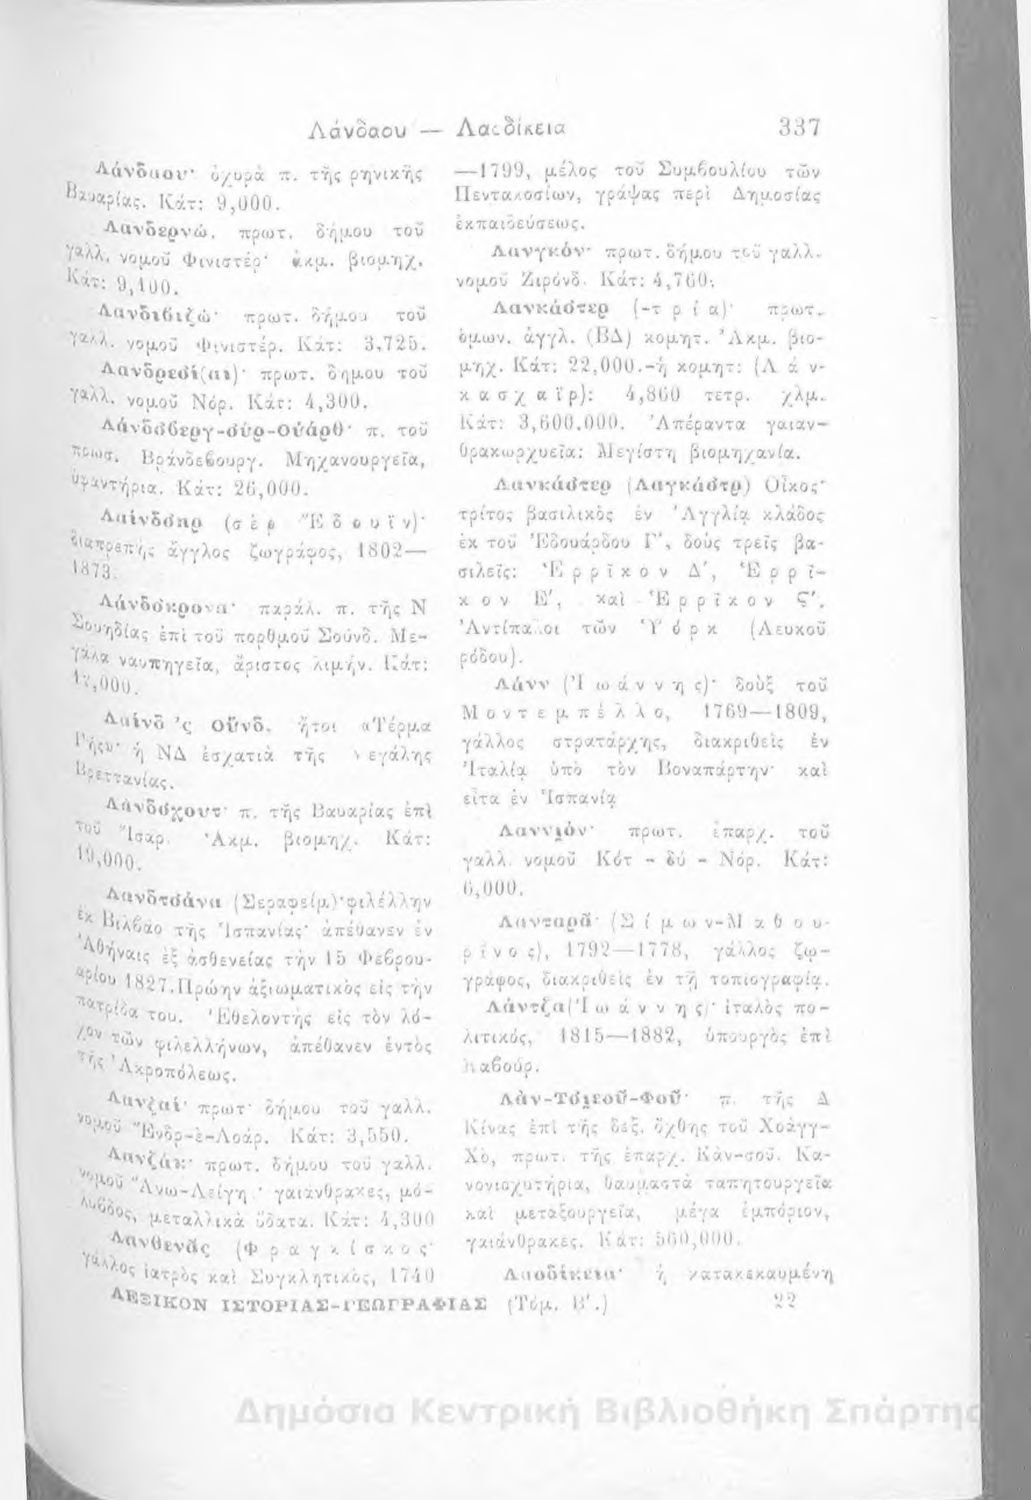 Λάνδαου — Λαοδίκεια 337
Λάνδαου· ὀχυρὰ π. τῆς ρηνικῆς
Βαυαρίας. Κάτ: 9,000.
Λανδερνώ. πρωτ. δήμου τοῦ
γαλλ. νομοῦ Φινιστέρ· ἀκμ. βιομηχ.
Κάτ: 9,100.
Λανδιβιζώ· πρωτ. δήμου τοῦ
γαλλ. νομοῦ Φινιστέρ. Κάτ: 3,725.
Λανδρεσί(αι)· πρωτ. δημου τοῦ
γαλλ. νομοῦ Νόρ. Κάτ: 4,300.
Λάνδσβεργ-σύρ-Οὐάρθ· π. τοῦ
πρωσ. Βράνδεβουργ. Μηχανουργεῖα,
ὑφαντήρια. Κάτ: 26,000.
Λαίνδσηρ (σὲρ Ἔδουϊν)·
διαπρεπὴς ἄγγλος ζωγράφος, 1802—
1873.
Λάνδσκρονα· παράλ. π. τῆς Ν
Σουηδίας ἐπὶ τοῦ πορθμοῦ Σούνδ. Με-
γάλα ναυπηγεῖα, ἄριστος λιμήν. Κάτ:
17,000.
Λαίνδ 'ς Οὔνδ. ἤτοι «Τέρμα
Γῆς»· ἡ ΝΔ ἐσχατιὰ τῆς Μεγάλης
Βρεττανίας.
Λάνδσχουτ· π. τῆς Βαυαρίας ἐπὶ
τοῦ Ἴσαρ. Ἀκμ. βιομηχ. Κάτ:
19,000.
Λανδτσάνα (Σεραφείμ)· φιλέλλην
ἐκ Βιλβάο τῆς Ἱσπανίας· ἀπέθανεν ἐν
Ἀθήναις ἐξ ἀσθενείας τὴν 15 Φεβρου-
αρίου 1827. Πρώην ἀξιωματικὸς εἰς τὴν
πατρίδα του. Ἐθελοντὴς εἰς τὸν λό-
χον τῶν φιλελλήνων, ἀπέθανεν ἐντὸς
τῆς Ἀκροπόλεως.
Λανζαί· πρωτ· δήμου τοῦ γαλλ.
νομοῦ Ἔνδρ-ὲ-Λοάρ. Κάτ: 3,550.
Λανζάκ· πρωτ. δήμου τοῦ γαλλ.
νομοῦ Ἄνω-Λείγηρ· γαιάνθρακες, μό-
λυβδος, μεταλλικὰ ὕδατα. Κάτ: 4,300
Λανθενᾶς (Φραγκίσκος·
γάλλος ἰατρὸς καὶ Συγκλητικὸς, 1740
—1799, μέλος τοῦ Συμβουλίου τῶν
Πεντακοσίων, γράψας περὶ Δημοσίας
ἐκπαιδεύσεως.
Λανγκόν· πρωτ. δήμου τοῦ γαλλ.
νομοῦ Ζιρόνδ. Κάτ: 4,760.
Λανκάστερ (-τρία)· πρωτ.
ὁμων. ἀγγλ. (ΒΔ) κομητ. Ἀκμ. βιο-
μηχ. Κάτ: 22,000.-ἡ κομητ: (Λάν-
κασχαϊρ): 4,860 τετρ. χλμ.
Κάτ: 3,600.000. Ἀπέραντα γαιαν-
θρακωρχυεῖα: Μεγίστη βιομηχανία.
Λανκάστερ (Λαγκάστρ) Οἶκος·
τρίτος βασιλικὸς ἐν Ἀγγλίᾳ κλάδος
ἐκ τοῦ Ἐδουάρδου Γ', δοὺς τρεῖς βα-
σιλεῖς: Ἑρρῖκον Δ', Ἑρρῖ-
κον Ε', καὶ Ἑρρῖκον Ϛ'.
Ἀντίπαλοι τῶν Ὑόρκ (Λευκοῦ
ρόδου).
Λάνν (Ἰωάννης)· δοὺξ τοῦ
Μοντεμπέλλο, 1769—1809,
γάλλος στρατάρχης, διακριθεὶς ἐν
Ἰταλίᾳ ὑπὸ τὸν Βοναπάρτην· καὶ
εἶτα ἐν Ἱσπανίᾳ
Λαννιόν· πρωτ. ἐπαρχ. τοῦ
γαλλ. νομοῦ Κότ - δύ - Νόρ. Κάτ:
6,000.
Λανταρᾶ· (Σίμων-Μαθου-
ρῖνος), 1792—1778, γάλλος ζω-
γράφος, διακριθεὶς ἐν τῇ τοπιογραφίᾳ.
Λάντζα (Ἰωάννης)· ἰταλὸς πο-
λιτικός, 1815—1882, ὑπουργὸς ἐπὶ
Καβούρ.
Λὰν-Τσιεοῦ-Φοῦ· π. τῆς Δ
Κίνας ἐπὶ τῆς δεξ. ὄχθης τοῦ Χοάγγ-
Χὸ, πρωτ. τῆς ἐπαρχ. Κὰν-σοῦ. Κα-
νονιοχυτήρια, θαυμαστὰ ταπητουργεῖα
καὶ μεταξουργεῖα, μέγα ἐμπόριον,
γαιάνθρακες. Κάτ: 500,000.
Λαοδίκεια· ἡ κατακεκαυμένη
ΛΕΞΙΚΟΝ ΙΣΤΟΡΙΑΣ-ΓΕΩΓΡΑΦΙΑΣ (Τόμ. Β'.) 22
Δημόσια Κεντρική Βιβλιοθήκη Σπάρτης